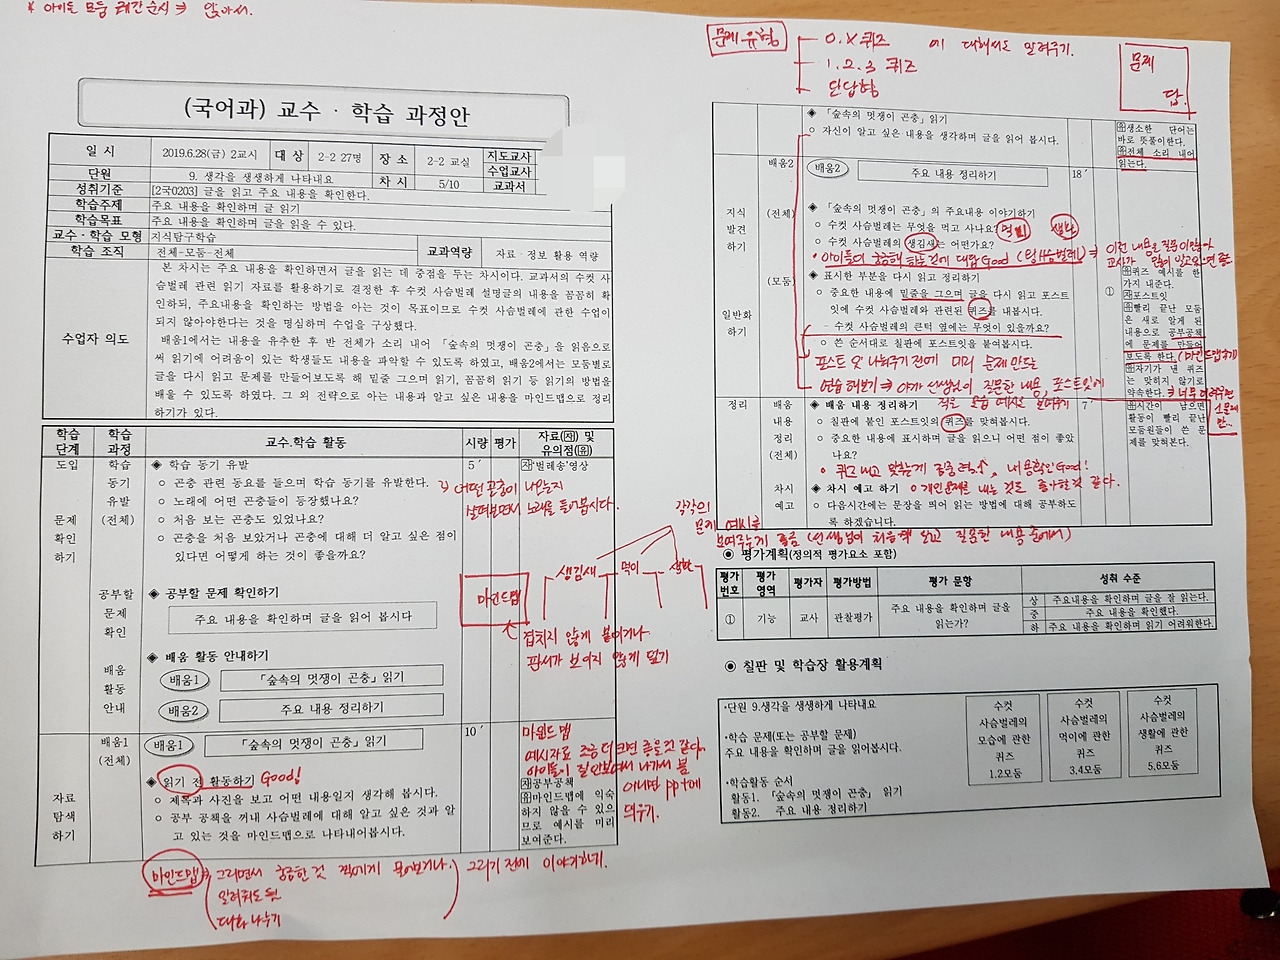 * 아이들 모둠 순시 ⇒ 앉아서.
(국어과) 교수 · 학습 과정안
일 시 2019.6.28(금) 2교시 대 상 2-2 27명 장 소 2-2 교실 지도교사
수업교사
단원 9. 생각을 생생하게 나타내요 차 시 5/10 교과서
성취기준 [2국0203] 글을 읽고 주요 내용을 확인한다.
학습주제 주요 내용을 확인하며 글 읽기
학습목표 주요 내용을 확인하며 글을 읽을 수 있다.
교수·학습 모형 지식탐구학습
학습 조직 전체-모둠-전체 교과역량 자료·정보 활용 역량
수업자 의도
본 차시는 주요 내용을 확인하면서 글을 읽는 데 중점을 두는 차시이다. 교과서의 수컷 사
슴벌레 관련 읽기 자료를 활용하기로 결정한 후 수컷 사슴벌레 설명글의 내용을 꼼꼼히 확
인하되, 주요내용을 확인하는 방법을 아는 것이 목표이므로 수컷 사슴벌레에 관한 수업이
되지 않아야한다는 것을 명심하며 수업을 구상했다.
배움1에서는 내용을 유추한 후 반 전체가 소리 내어 「숲속의 멋쟁이 곤충」을 읽음으로
써 읽기에 어려움이 있는 학생들도 내용을 파악할 수 있도록 하였고, 배움2에서는 모둠별로
글을 다시 읽고 문제를 만들어보도록 해 밑줄 그으며 읽기, 꼼꼼히 읽기 등 읽기의 방법을
배울 수 있도록 하였다. 그 외 전략으로 아는 내용과 알고 싶은 내용을 마인드맵으로 정리
하기가 있다.
학습 단계 학습 과정 교수.학습 활동 시량 평가 자료(자) 및 유의점(유)
도입 학습 ◈ 학습 동기 유발 5´ 자'벌레송'영상
동기 ○ 곤충 관련 동요를 들으며 학습 동기를 유발한다.
어떤 곤충이 나오는지
유발 ○ 노래에 어떤 곤충들이 등장했나요?
살펴보면서 노래를 들어봅시다.
문제 (전체) ○ 처음 보는 곤충도 있었나요?
확인 ○ 곤충을 처음 보았거나 곤충에 대해 더 알고 싶은 점이
하기 있다면 어떻게 하는 것이 좋을까요?
공부할 ◈ 공부할 문제 확인하기
문제 주요 내용을 확인하며 글을 읽어 봅시다
확인
마인드맵
생김새 먹이 생활
겹치지 않게 붙이거나
판서가 보이지 않게 덮기
배움 ◈ 배움 활동 안내하기
활동 배움1 「숲속의 멋쟁이 곤충」 읽기
안내 배움2 주요 내용 정리하기
배움1 배움1 「숲속의 멋쟁이 곤충」 읽기 10´
(전체)
마인드맵
예시자료 조금 더 크면 좋을것 같다.
아이들이 잘 안보여서 나가서 봄
아니면 ppt에
띄우기.
◈ 읽기 전 활동하기 Good!
자료 ○ 제목과 사진을 보고 어떤 내용일지 생각해 봅시다.
탐색 ○ 공부 공책을 꺼내 사슴벌레에 대해 알고 싶은 것과 알
하기 고 있는 것을 마인드맵으로 나타내어봅시다.
자공부공책
유마인드맵에 익숙
하지 않을 수 있으
므로 예시를 미리
보여준다.
마인드맵 ⇒ 그리면서 궁금한것 짝에게 물어보거나
알려줘도 됨
대화 나누기
그리기 전에 이야기하기.
문제 유형
O.X 퀴즈
1.2.3 퀴즈
단답형
에 대해서도 알려주기.
문제
답.
◈ 「숲속의 멋쟁이 곤충」 읽기
○ 자신이 알고 싶은 내용을 생각하며 글을 읽어 봅시다.
유생소한 단어는
바로 뜻풀이한다.
유전체 소리 내어
읽는다.
배움2 배움2 주요 내용 정리하기 18´
지식 (전체) ◈ 「숲속의 멋쟁이 곤충」의 주요내용 이야기하기
발견 ○ 수컷 사슴벌레는 무엇을 먹고 사나요? 먹이 생활
하기 ○ 수컷 사슴벌레의 생김새는 어떤가요?
• 아이들이 궁금해 하는것에 대답 Good
(모둠) ◈ 표시한 부분을 다시 읽고 정리하기
○ 중요한 내용에 밑줄을 그으며 글을 다시 읽고 포스트
일반화 잇에 수컷 사슴벌레와 관련된 퀴즈를 내봅시다.
하기 - 수컷 사슴벌레의 큰턱 옆에는 무엇이 있을까요?
○ 쓴 순서대로 칠판에 포스트잇을 붙여봅시다.
①
유퀴즈 예시를 한
가지 내준다.
자포스트잇
유빨리 끝난 모둠
은 새로 알게 된
내용으로 공부공책
에 문제를 만들어
보도록 한다. (마인드맵하기)
유자기가 낸 퀴즈
는 맞히지 않기로
약속한다.
포스트잇 나눠주기 전에 미리 문제 만드는
연습해보기 ⇒ 아까 선생님이 질문한 내용, 포스트잇에
적은 모습 예시로 보여주기
정리 배움 ◈ 배움 내용 정리하기 7´
내용 ○ 칠판에 붙인 포스트잇의 퀴즈를 맞혀봅시다.
정리 ○ 중요한 내용에 표시하며 글을 읽으니 어떤 점이 좋았
(전체) 나요?
유시간이 남으면
활동이 빨리 끝난
모둠원들이 쓴 문
제를 맞혀본다.
○ 퀴즈 내고 맞추게 집중력↑, 내용확인 Good!
차시 ◈ 차시 예고 하기 ○ 개인문제를 내는 것도 좋아할것 같다.
예고 ○ 다음시간에는 문장을 띄어 읽는 방법에 대해 공부하도
록 하겠습니다.
각각의
문제 예시를
보여주는게 좋음 (선생님이 처음에 읽고 질문한 내용 중에서)
◉ 평가계획(정의적 평가요소 포함)
평가 번호 평가 영역 평가자 평가방법 평가 문항 성취 수준
① 기능 교사 관찰평가 주요 내용을 확인하며 글을 읽는가?
상 주요내용을 확인하며 글을 잘 읽는다.
중 주요 내용을 확인했다.
하 주요 내용을 확인하며 읽기 어려워한다.
◉ 칠판 및 학습장 활용계획
·단원 9.생각을 생생하게 나타내요
·학습 문제(또는 공부할 문제)
주요 내용을 확인하며 글을 읽어봅시다.
·학습활동 순서
활동1. 「숲속의 멋쟁이 곤충」 읽기
활동2. 주요 내용 정리하기
수컷
사슴벌레의
모습에 관한
퀴즈
1.2모둠
수컷
사슴벌레의
먹이에 관한
퀴즈
3.4모둠
수컷
사슴벌레의
생활에 관한
퀴즈
5.6모둠